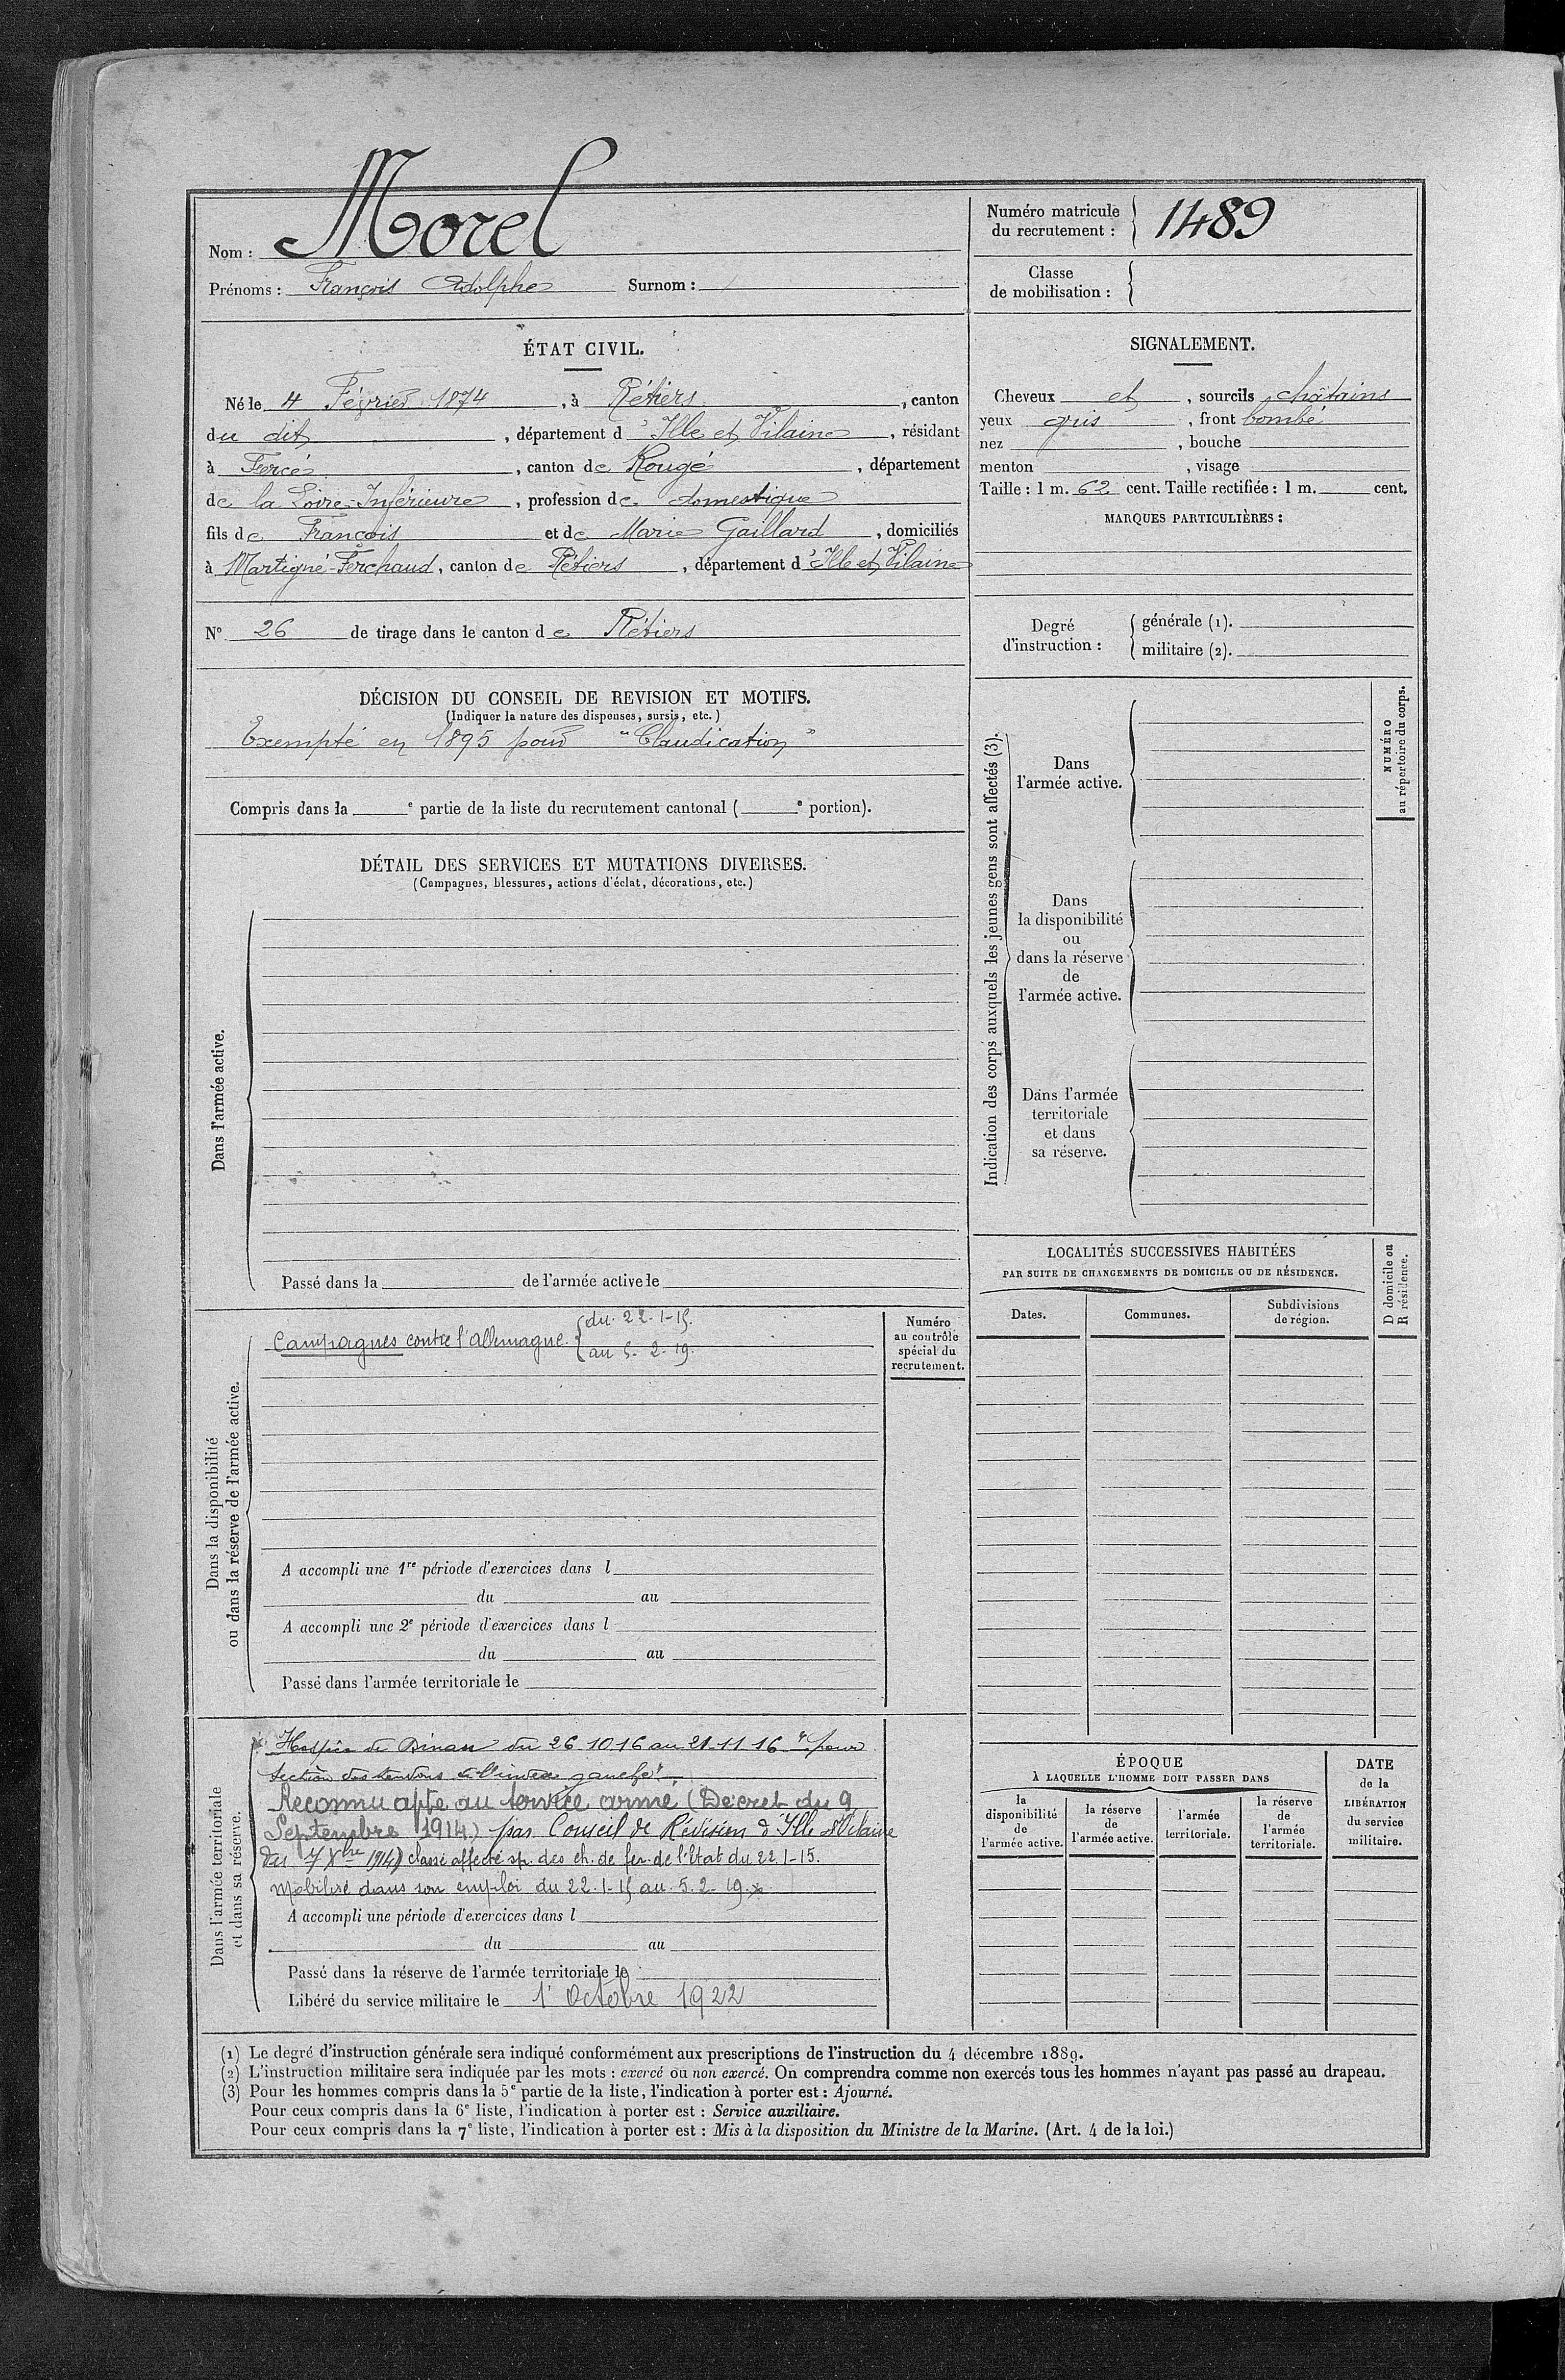 Nom : Morel
Prénoms : François Adolphe Surnom : /
Numéro matricule du recrutement : 1489
Classe de mobilisation :
ÉTAT CIVIL.
Né le 4 Février 1874, à Rétiers, canton
du dit, département d'Ille et Vilaine, résidant
à Fercé, canton de Rougé, département
de la Loire-Inférieure, profession de domestique
fils de François et de Marie Gaillard, domiciliés
à Martigné-Ferchaud, canton de Rétiers, département d'Ille et Vilaine
N° 26 de tirage dans le canton de Rétiers
SIGNALEMENT.
Cheveux et, sourcils châtains
yeux gris, front bombé
nez , bouche
menton , visage
Taille : 1 m. 62 cent. Taille rectifiée : 1 m. cent.
MARQUES PARTICULIÈRES :
Degré d'instruction :
générale (1).
militaire (2).
DÉCISION DU CONSEIL DE REVISION ET MOTIFS.
(Indiquer la nature des dispenses, sursis, etc.)
Exempté en 1895 pour "Claudication"
Compris dans la e partie de la liste du recrutement cantonal ( e portion).
DÉTAIL DES SERVICES ET MUTATIONS DIVERSES.
(Campagnes, blessures, actions d'éclat, décorations, etc.)
Dans l'armée active.
Passé dans la de l'armée active le
Indication des corps auxquels les jeunes gens sont affectés (3).
Dans
l'armée active.
Dans
la disponibilité
ou
dans la réserve
de
l'armée active.
Dans l'armée
territoriale
et dans
sa réserve.
NUMÉRO
au répertoire du corps.
Dans la disponibilité
ou dans la réserve de l'armée active.
Campagnes contre l'Allemagne. du 22-1-15.
au 5-2-19.
Numéro
au contrôle
spécial du
recrutement.
A accompli une 1re période d'exercices dans l
du au
A accompli une 2e période d'exercices dans l
du au
Passé dans l'armée territoriale le
LOCALITÉS SUCCESSIVES HABITÉES
PAR SUITE DE CHANGEMENTS DE DOMICILE OU DE RÉSIDENCE.
Dates. Communes. Subdivisions
de région.
D domicile ou
R résidence.
Dans l'armée territoriale
et dans sa réserve.
Hospice de Dinan du 26 10 16 au 21-11 16 "pour
section des tendons à l'index gauche".
Reconnu apte au service armé (Décret du 9
Septembre 1914) par Conseil de Révision d'Ille et Vilaine
du 7 Xbre 1914) classé affecté sp. des ch. de fer de l'Etat du 22.1-15.
mobilisé dans son emploi du 22.1-15 au 5.2-19.x
A accompli une période d'exercices dans l
du au
Passé dans la réserve de l'armée territoriale le
Libéré du service militaire le 1er Octobre 1922
ÉPOQUE
À LAQUELLE L'HOMME DOIT PASSER DANS
la
disponibilité
de
l'armée active.
la réserve
de
l'armée active.
l'armée
territoriale.
la réserve
de
l'armée
territoriale.
DATE
de la
LIBÉRATION
du service
militaire.
(1) Le degré d'instruction générale sera indiqué conformément aux prescriptions de l'instruction du 4 décembre 1889.
(2) L'instruction militaire sera indiquée par les mots : exercé ou non exercé. On comprendra comme non exercés tous les hommes n'ayant pas passé au drapeau.
(3) Pour les hommes compris dans la 5e partie de la liste, l'indication à porter est : Ajourné.
Pour ceux compris dans la 6e liste, l'indication à porter est : Service auxiliaire.
Pour ceux compris dans la 7e liste, l'indication à porter est : Mis à la disposition du Ministre de la Marine. (Art. 4 de la loi.)